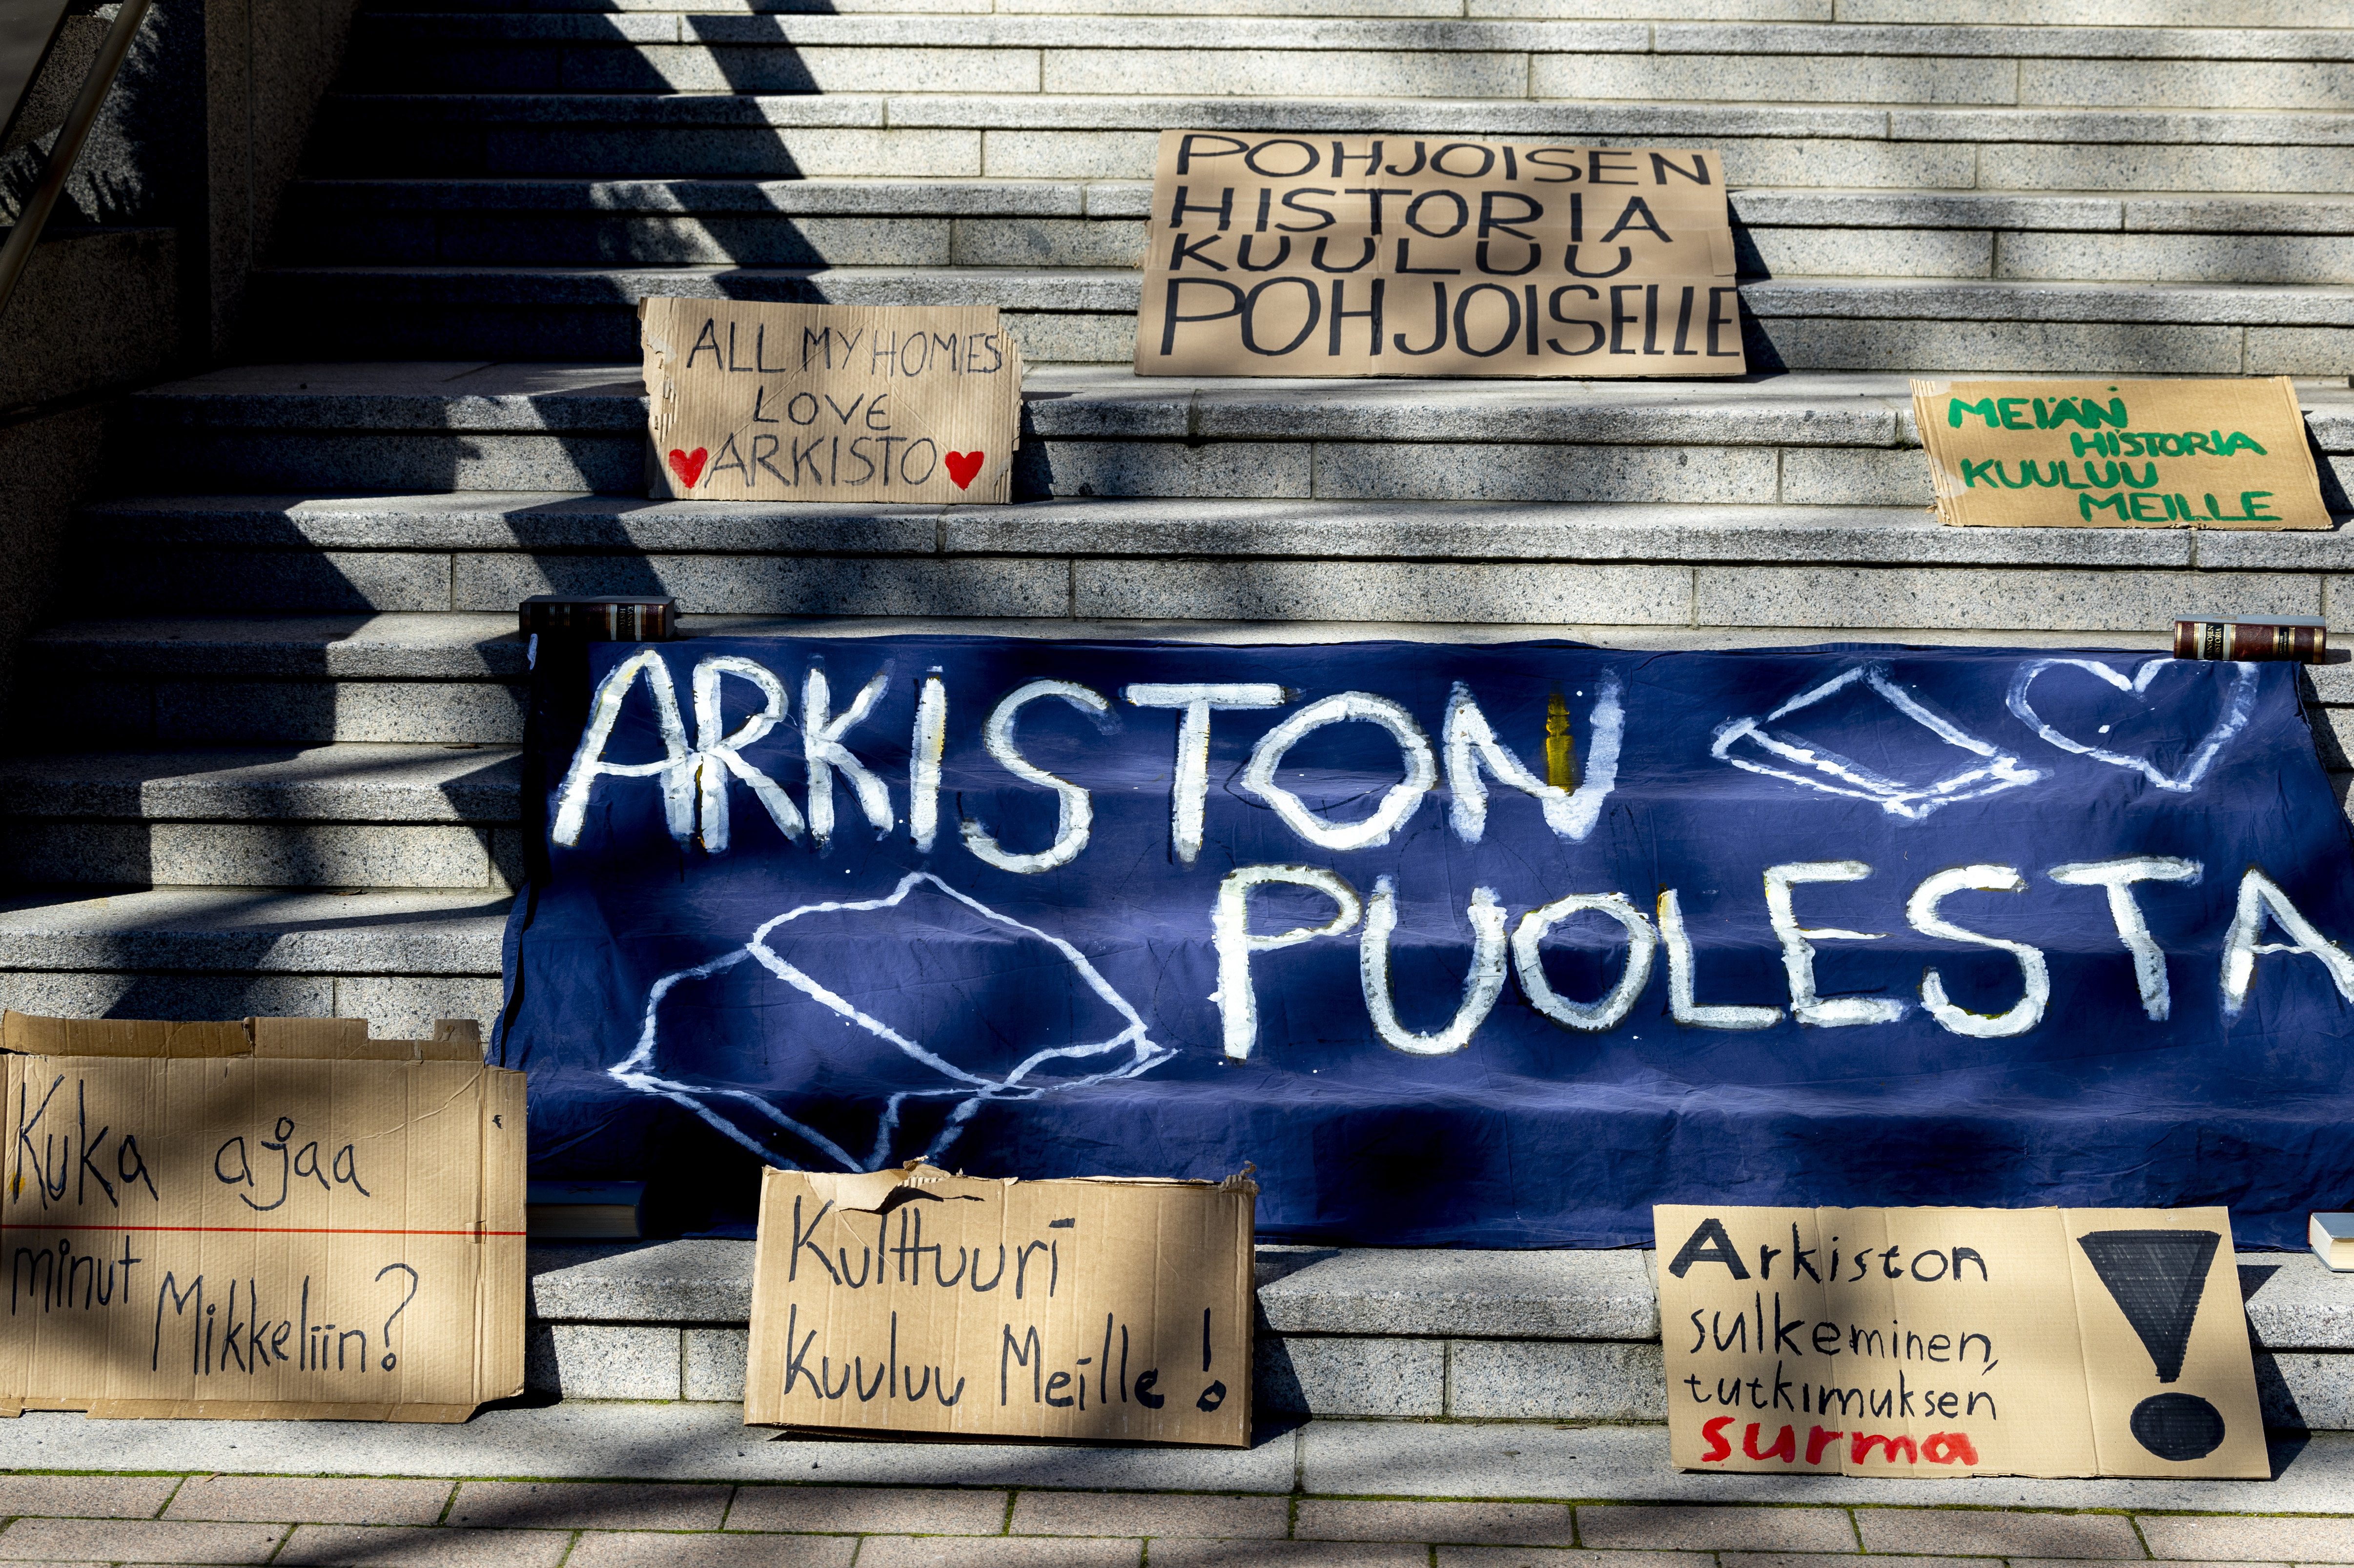 POHJOISEN
HISTORIA
KUULUU
POHJOISELLE
ALL MY HOMIES
LOVE
ARKISTO
MEIÄN
HISTORIA
KUULUU
MEILLE
ARKISTON
PUOLESTA
Kuka ajaa
minut
Mikkeliin?
Kulttuuri
kuuluu Meille!
Arkiston
sulkeminen,
tutkimuksen
surma
!